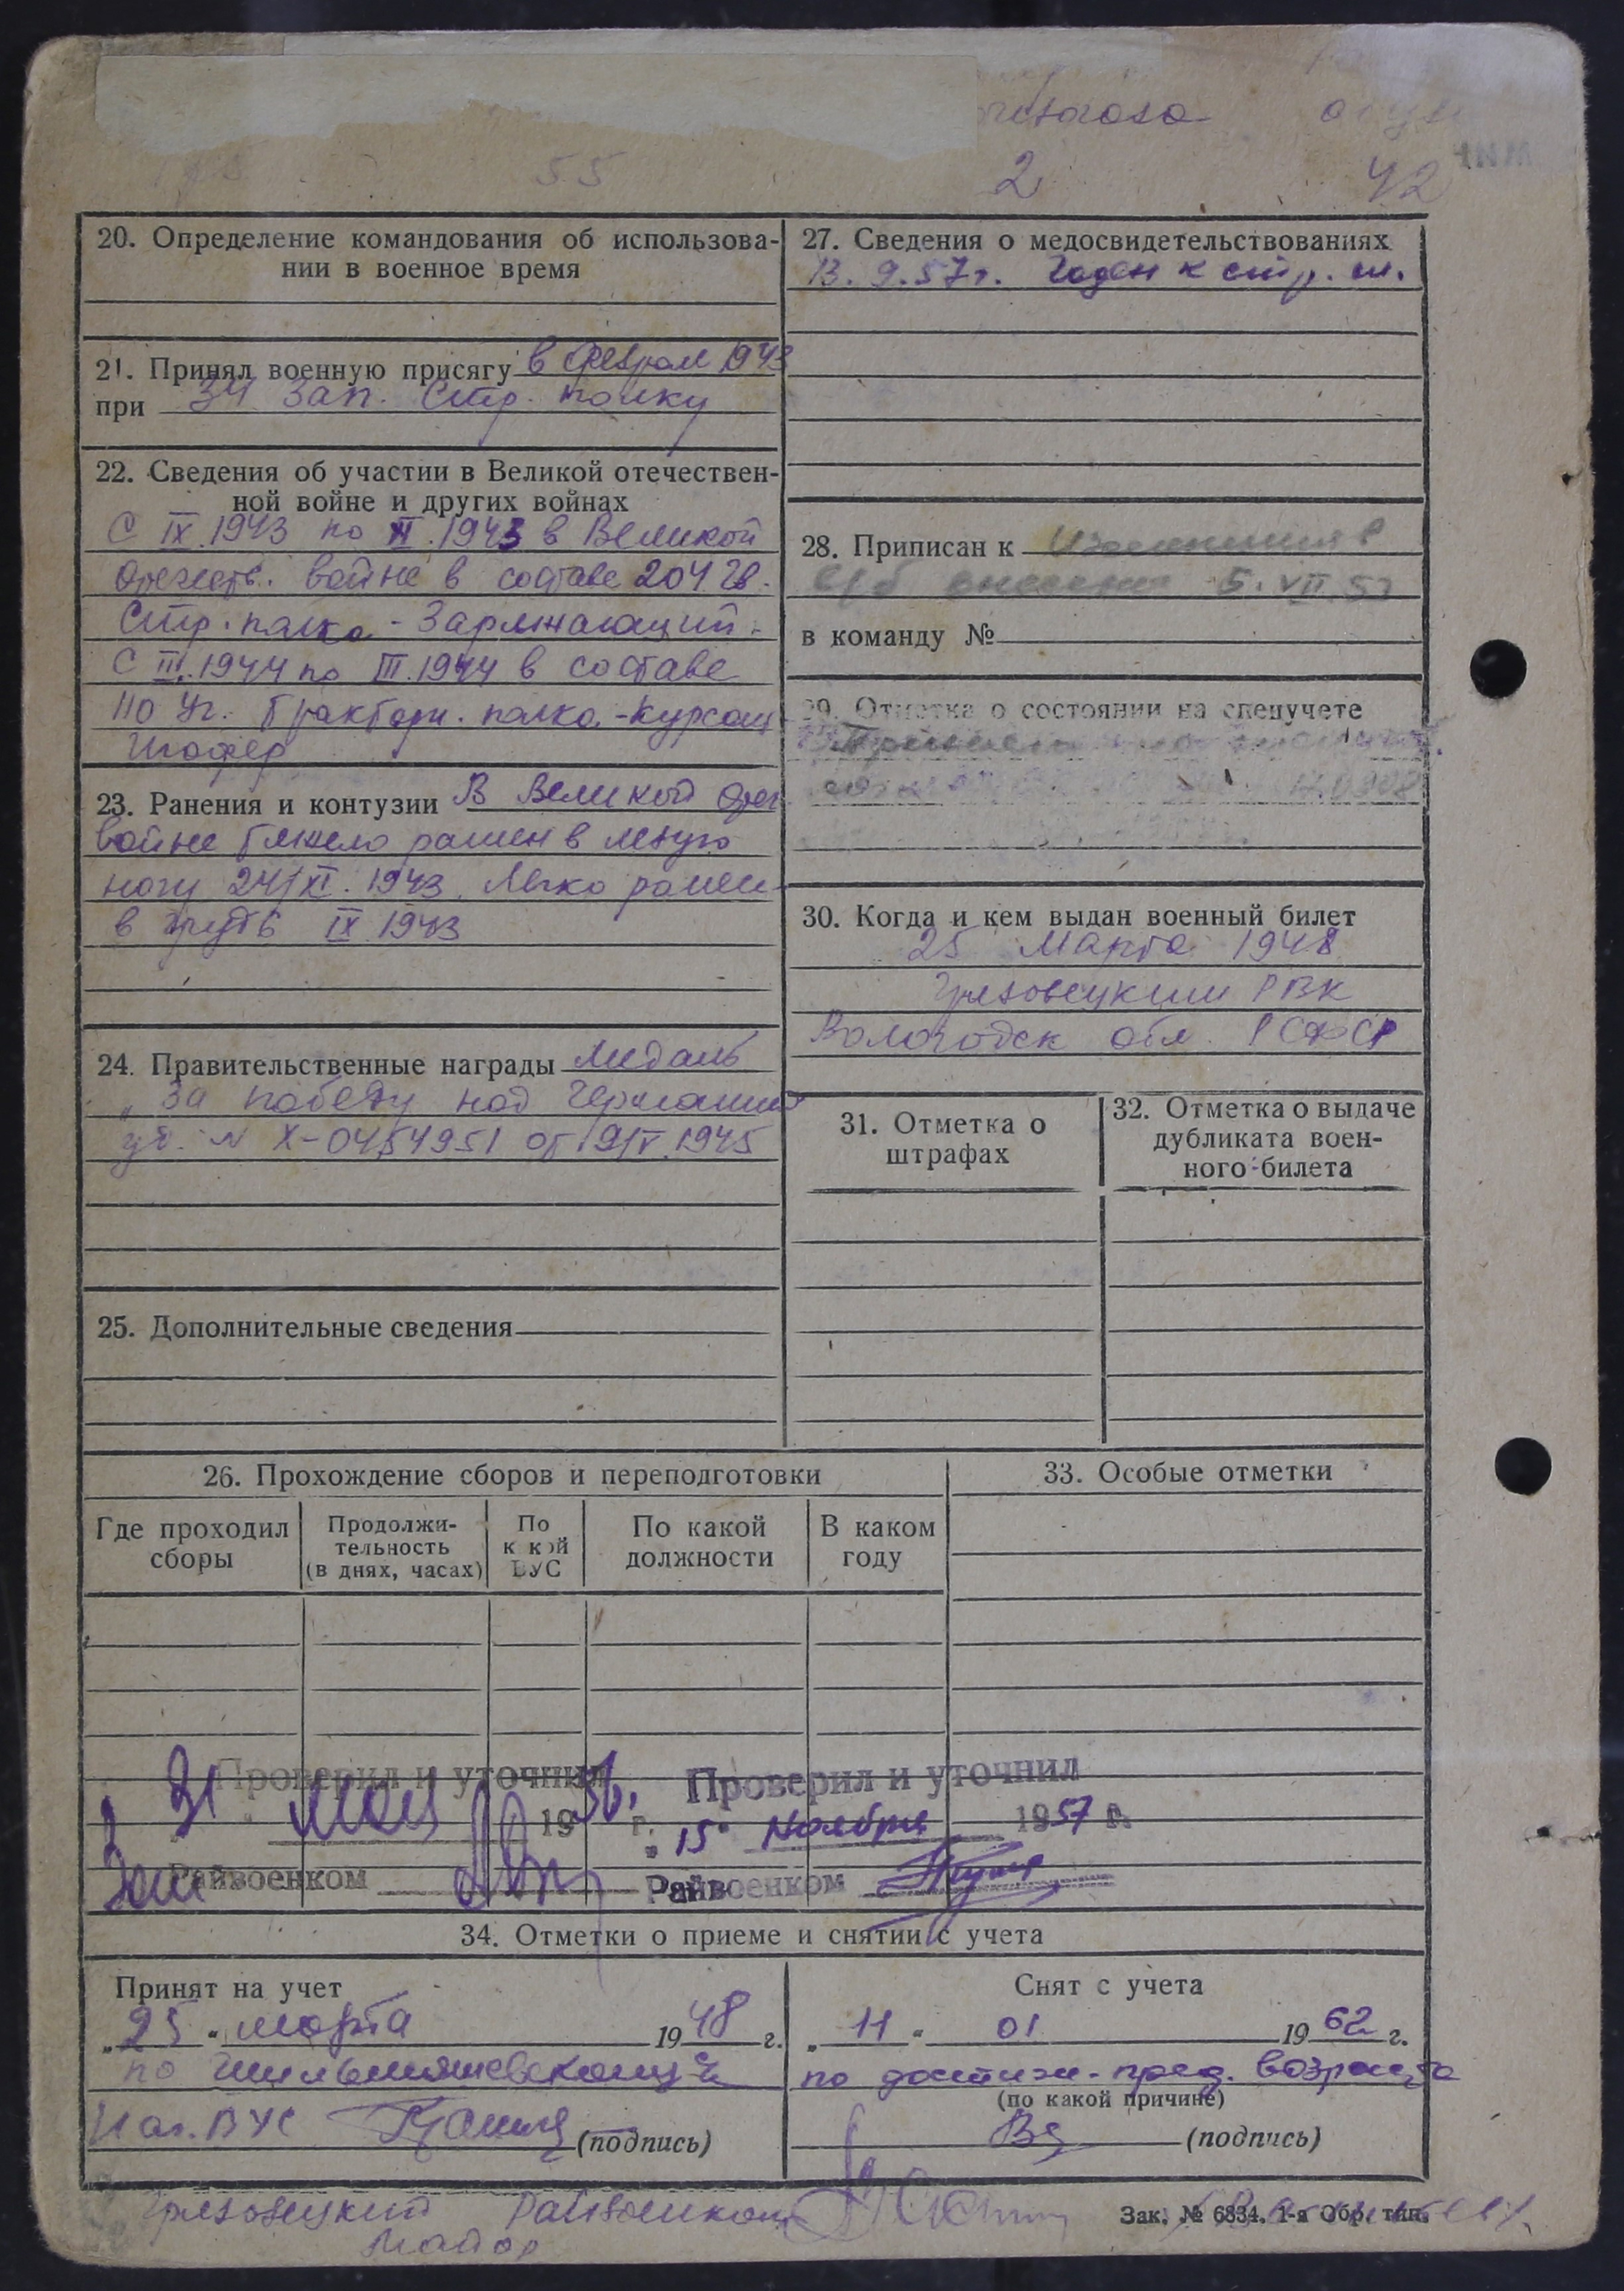 55 2 42
20. Определение командования об использова-
нии в военное время
21. Принял военную присягу в феврал 1943
при 34 Зап. Стр. полку
22. Сведения об участии в Великой отечествен-
ной войне и других войнах
С IX.1943 по XI.1943 в Великой
Отечеств. войне в составе 204 гв.
Стр. полка - Заряжающий.
С III.1944 по III.1944 в составе
110 Уч. Трактори. полка - курсант
Шофер
23. Ранения и контузии В Великой Отеч
войне тяжело ранен в левую
ногу 24/XI. 1943. Легко ранен
в грудь IX 1943
24. Правительственные награды Медаль
„За победу над Германией
уд. № X-0454951 от 9/V.1945
25. Дополнительные сведения
27. Сведения о медосвидетельствованиях
13. 9. 57 г. Годен к стр. сл.
28. Приписан к
5. VII. 57
в команду №
29. Отметка о состоянии на спецучете
30. Когда и кем выдан военный билет
25 Марта 1948
Грязовецким РВК
Вологодск обл. РСФСР
31. Отметка о
штрафах
32. Отметка о выдаче
дубликата воен-
ного билета
26. Прохождение сборов и переподготовки
Где проходил
сборы
Продолжи-
тельность
(в днях, часах)
По
какой
ВУС
По какой
должности
В каком
году
33. Особые отметки
Проверил и уточнил
31 мая 1956 г.
Райвоенком
Проверил и уточнил
„15" Ноября 1957 г.
Райвоенком
34. Отметки о приеме и снятии с учета
Принят на учет
„25" марта 1948 г.
по
Нач. ВУС (подпись)
Снят с учета
„11" 01 1962 г.
по достиж. пред. возраста
(по какой причине)
(подпись)
Грязовецкий Райвоенком
Майор
Зак. № 6834. 1-я Обр. тип.